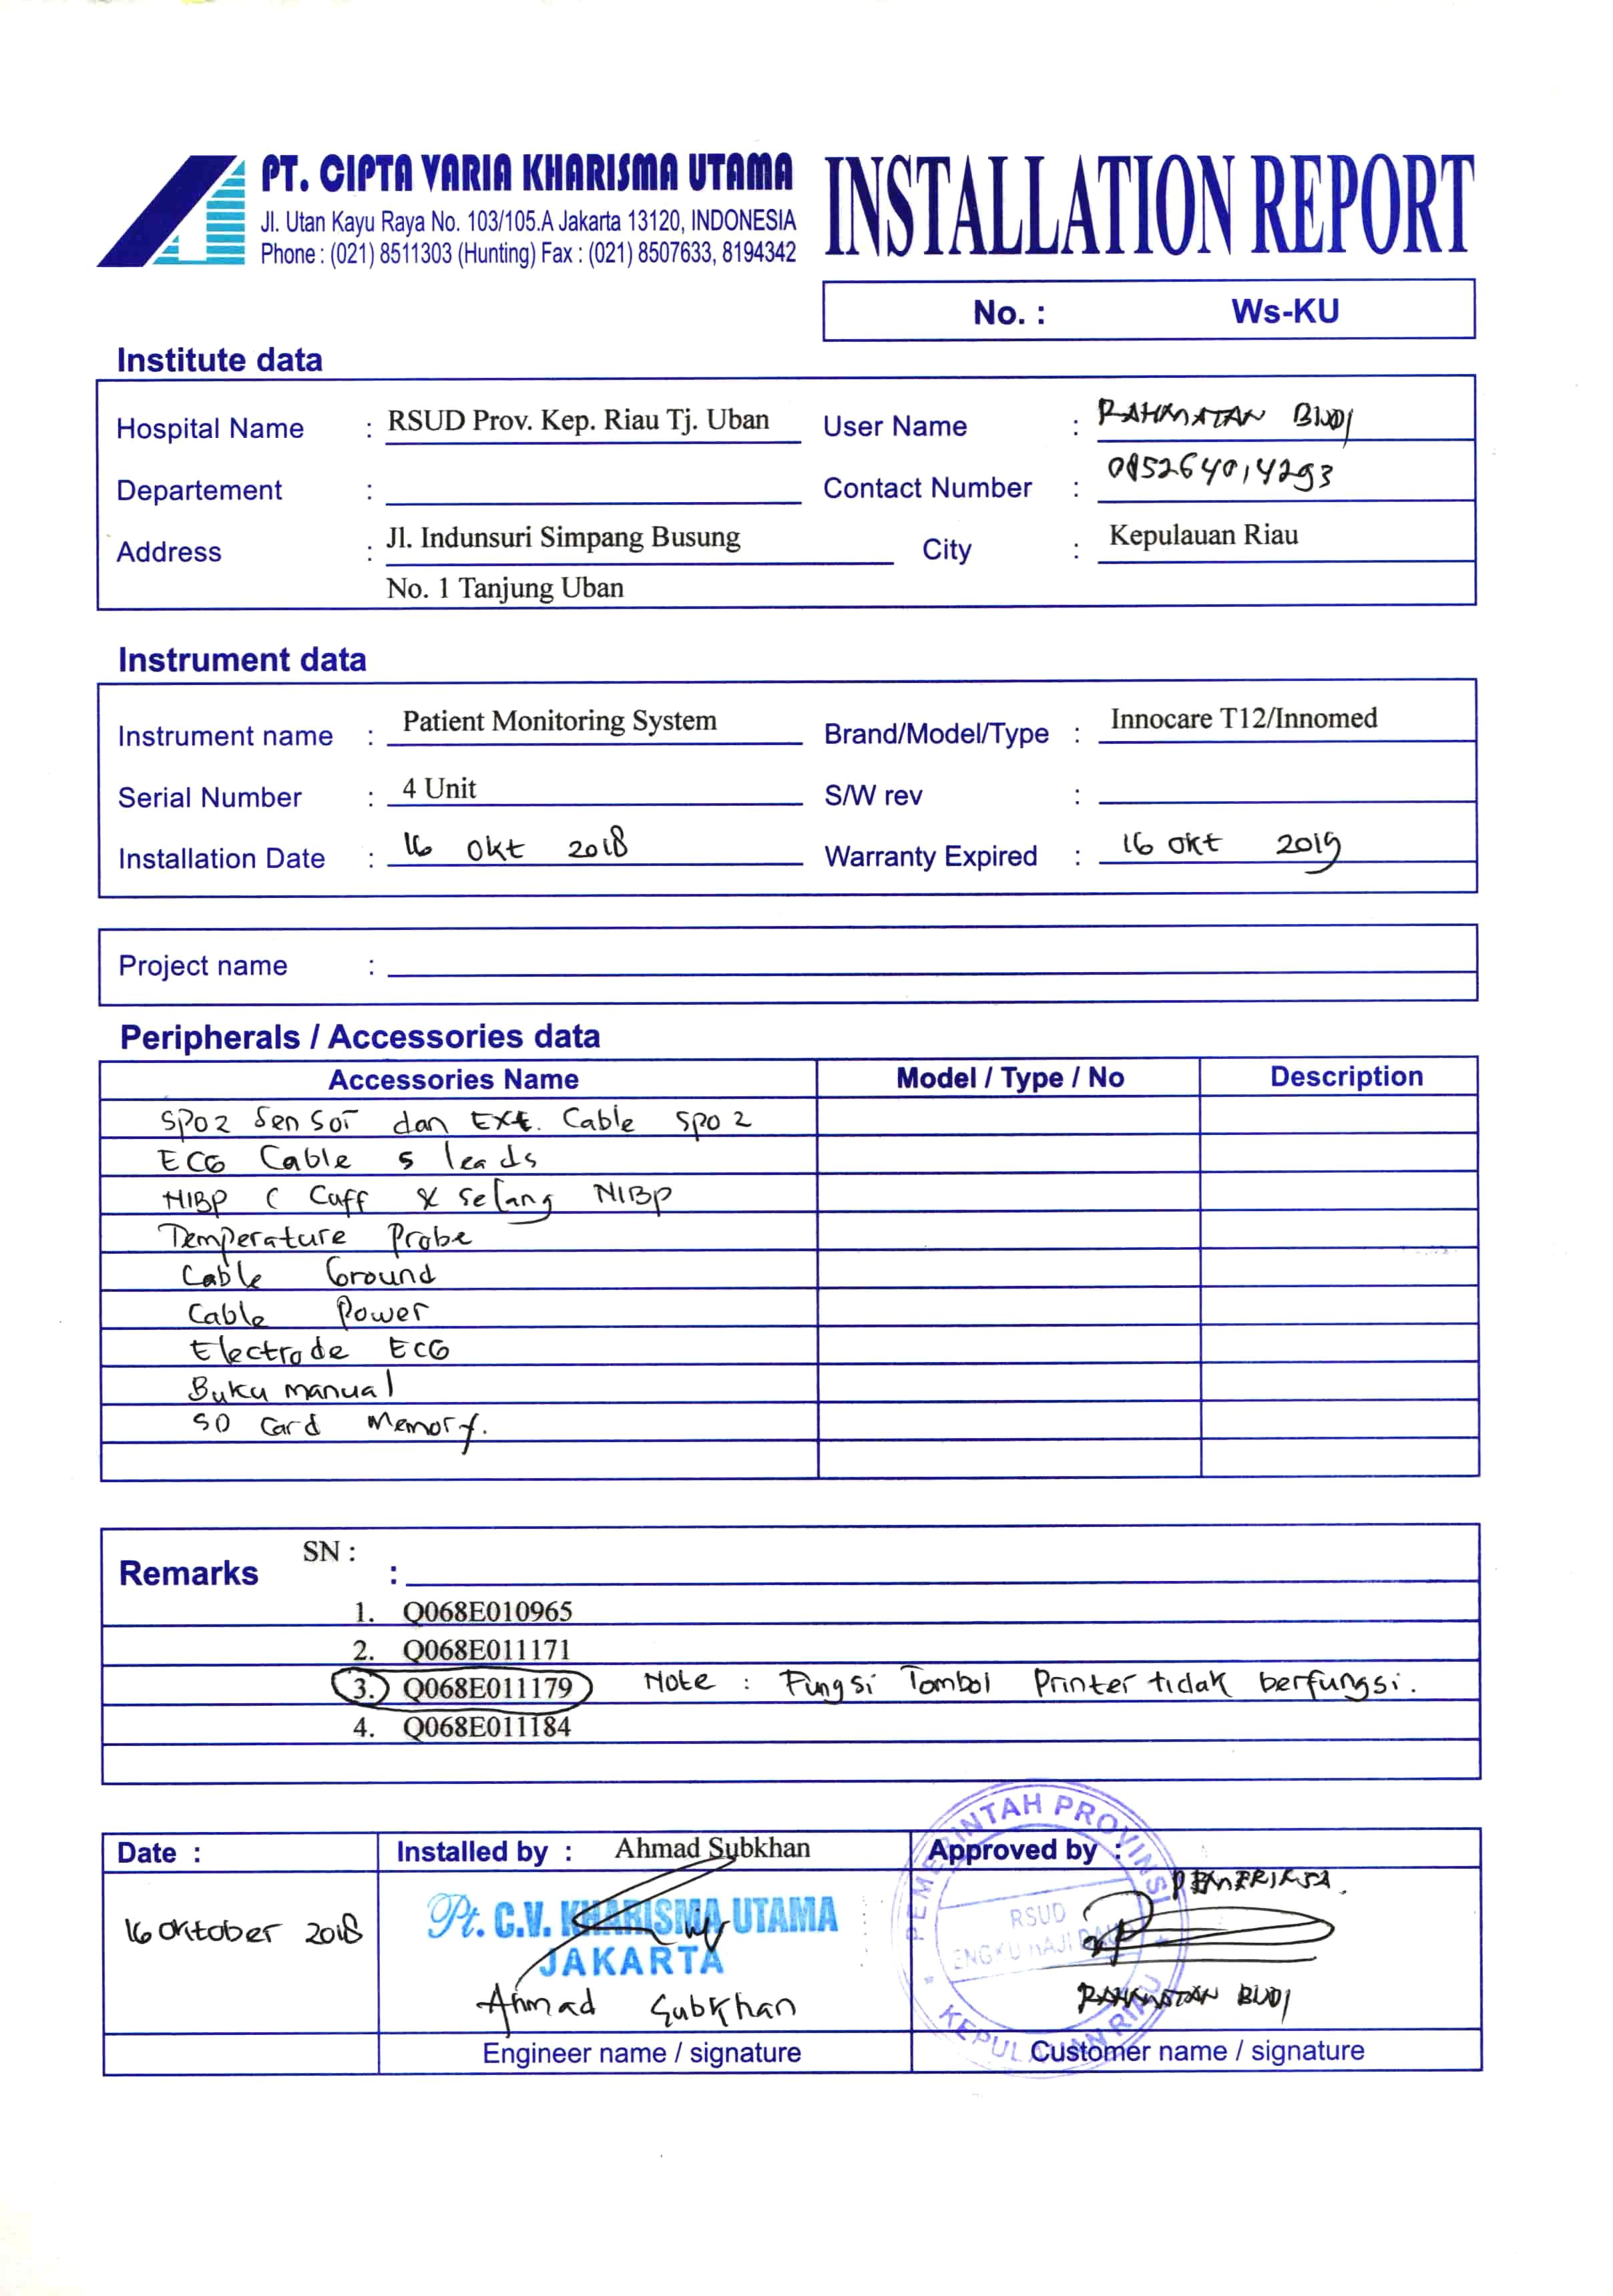 PT. CIPTA VARIA KHARISMA UTAMA
Jl. Utan Kayu Raya No. 103/105.A Jakarta 13120, INDONESIA
Phone : (021) 8511303 (Hunting) Fax : (021) 8507633, 8194342
INSTALLATION REPORT
No. : Ws-KU
Institute data
Hospital Name : RSUD Prov. Kep. Riau Tj. Uban User Name : RAHMATAN BUDI
Departement : Contact Number : 085264014293
Address : Jl. Indunsuri Simpang Busung City : Kepulauan Riau
No. 1 Tanjung Uban
Instrument data
Instrument name : Patient Monitoring System Brand/Model/Type : Innocare T12/Innomed
Serial Number : 4 Unit S/W rev :
Installation Date : 16 Okt 2018 Warranty Expired : 16 Okt 2019
Project name :
Peripherals / Accessories data
Accessories Name Model / Type / No Description
SPO2 Sensor dan Ext. Cable SPO2
ECG Cable 5 leads
NIBP ( Cuff & selang NIBP
Temperature Probe
Cable Ground
Cable Power
Electrode ECG
Buku manual
SD Card Memory.
Remarks SN : :
1. Q068E010965
2. Q068E011171
3. Q068E011179 Note : Fungsi Tombol Printer tidak berfungsi.
4. Q068E011184
Date : Installed by : Ahmad Subkhan Approved by :
PEMERIKSA.
16 Oktober 2018
Pt. C.V. KHARISMA UTAMA
JAKARTA
Ahmad Subkhan
RAHMATAN BUDI
PEMERINTAH PROVINSI
RSUD
ENGKU HAJI DAUD
KEPULAUAN RIAU
Engineer name / signature Customer name / signature